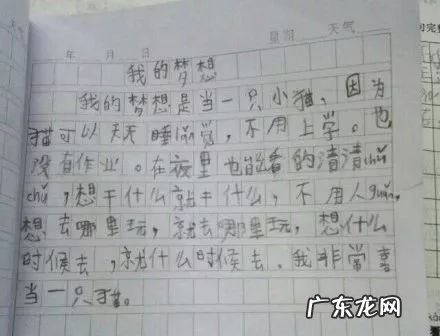 年 月 日 星期 天气
我的梦想
我的梦想是当一只小猫，因为
猫可以天天睡觉，不用上学。也
没有作业。在夜里也能看的清清chǔ
chǔ，想干什么就干什么，不用人guǎn，
想去哪里玩，就去哪里玩，想什么
时候去，就什么时候去．我非常喜
当一只猫。
广东龙网